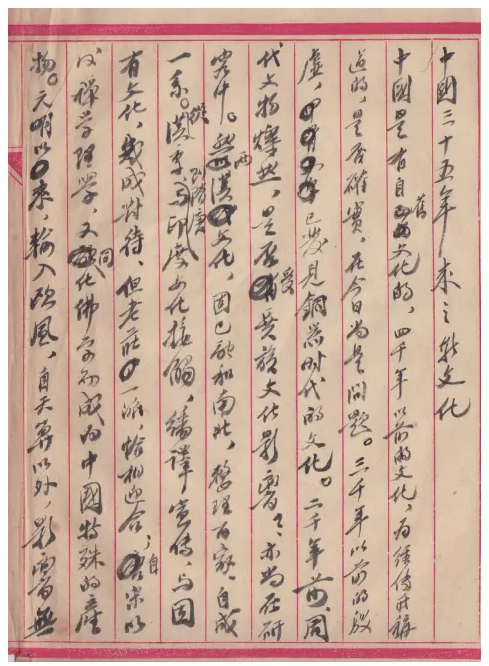 中國三十五年來之新文化
中國是有自己的舊文化的，四千年以前的文化，为經傳所稱
道的，是否確實，在今日尚是問題。三千年以前的殷
虛，已發見銅器时代的文化。二千年前，周
代文物燦然，是否受異族文化影響，亦尚在研
究中。兩漢文化，固已融和南北，整理百家，自成
一系。從漢季到隋唐与印度文化接觸，繙譯宣傳，与固
有文化，幾成對待，但老莊一派，恰相迎合，自宋以
後禪学理學，又同化佛学而成为中國特殊的產
物。元明以來，輸入欧風，自天算以外，影響無